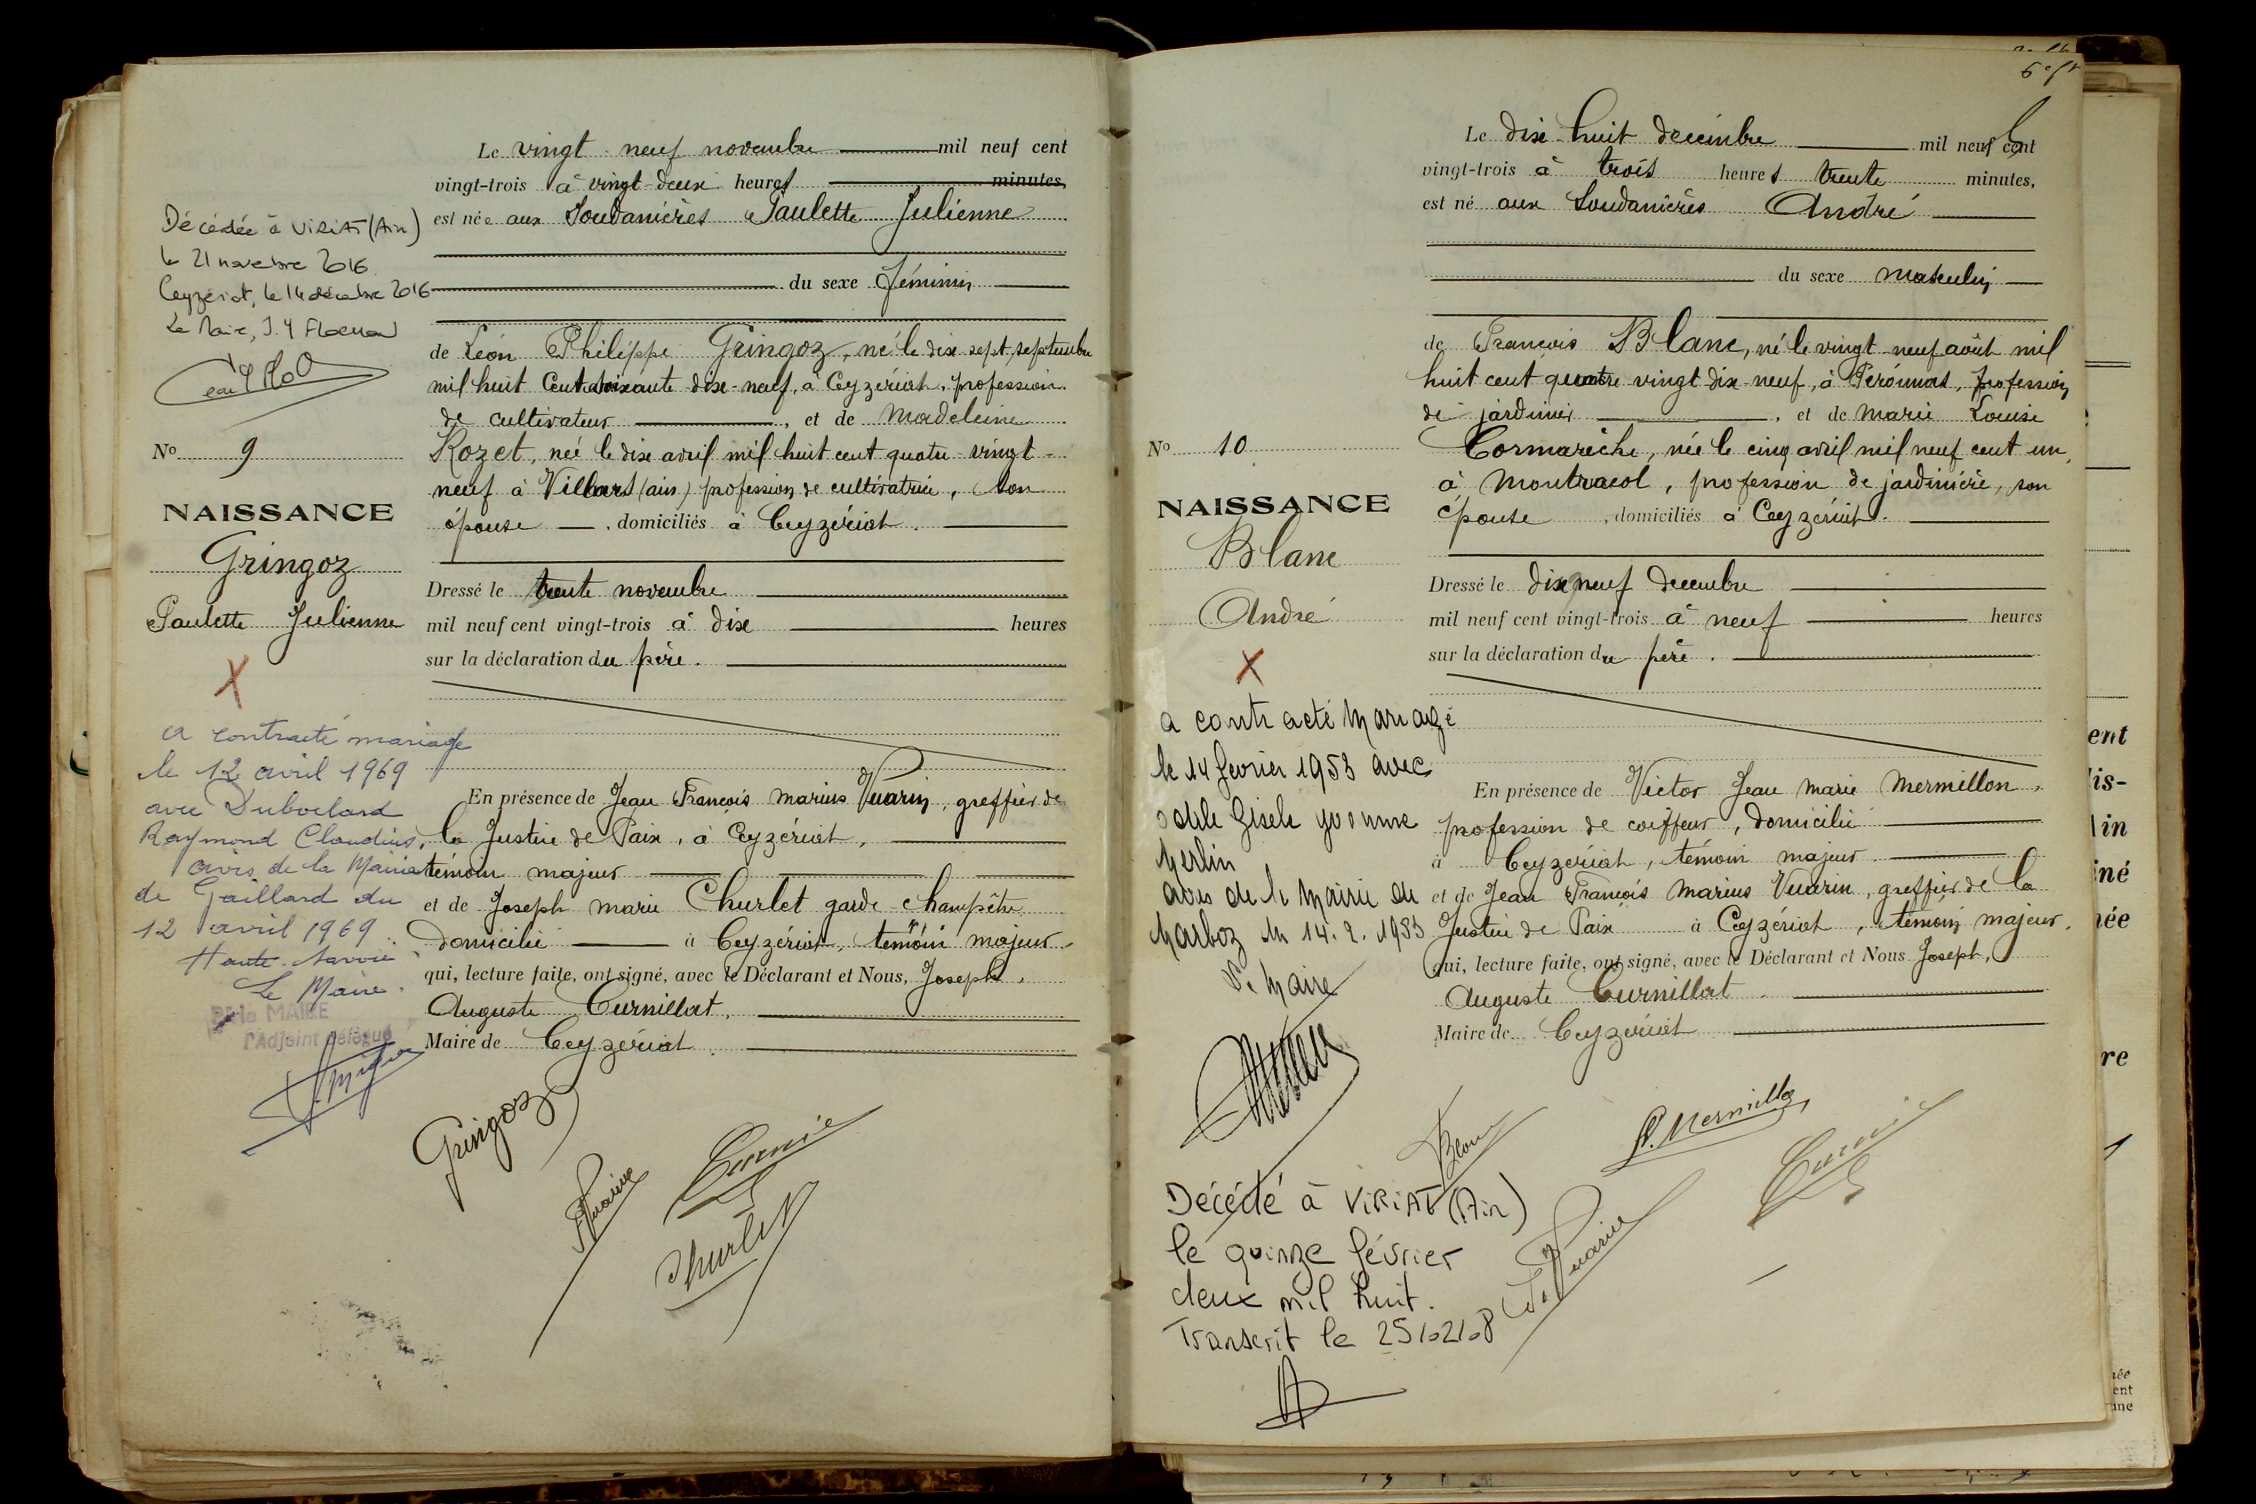 Le vingt-neuf novembre mil neuf cent
vingt-trois à vingt-deux heures minutes,
est née aux Soudanières Paulette Julienne
du sexe féminin
de Léon Philippe Gringoz, né le dix sept septembre
mil huit cent soixante dix-neuf, à Ceyzériat, profession
de cultivateur, et de Madeleine
Rozet, née le dix avril mil huit cent quatre-vingt-
neuf à Villars (ain) profession de cultivatrice, son
épouse, domiciliés à Ceyzériat.
Dressé le trente novembre
mil neuf cent vingt-trois à dix heures
sur la déclaration du père.
En présence de Jean François Marius Vuarin, greffier de
la Justice de Paix, à Ceyzériat,
témoin majeur
et de Joseph Marie Churlet garde-champêtre
domicilié à Ceyzériat, témoin majeur
qui, lecture faite, ont signé, avec le Déclarant et Nous, Joseph,
Auguste Curnillat,
Maire de Ceyzériat.
Gringoz
Churlet
Décédée à VIRIAT (Ain)
le 21 novembre 2016
Ceyzériat, le 14 décembre 2016
Le Maire, J.Y
No 9
NAISSANCE
Gringoz
Paulette Julienne
X
a contracté mariage
le 12 avril 1969
avec Duboclard
Raymond Claudius,
avis de la Mairie
de Gaillard du
12 avril 1969
Haute-Savoie
Le Maire.
P. le MAIRE
l'Adjoint Délégué
Le dix-huit décembre mil neuf cent
vingt-trois à trois heures trente minutes,
est né aux Soudanières André
du sexe masculin
de François Blanc, né le vingt-neuf août mil
huit cent quatre vingt dix-neuf, à Péronnas, profession
de jardinier, et de Marie Louise
Cormarèche, née le cinq avril mil neuf cent un,
à Montracol, profession de jardinière, son
épouse, domiciliés à Ceyzériat.
Dressé le dix neuf décembre
mil neuf cent vingt-trois à neuf heures
sur la déclaration du père.
En présence de Victor Jean Marie Mermillon,
profession de coiffeur, domicilié
à Ceyzériat, témoin majeur
et de Jean François Marius Vuarin, greffier de la
Justice de Paix à Ceyzériat, témoin majeur.
qui, lecture faite, ont signé, avec le Déclarant et Nous Joseph,
Auguste Curnillat
Maire de Ceyzériat
Blanc
No 10
NAISSANCE
Blanc
André
X
a contracté mariage
le 14 février 1953 avec
Odile Gisèle Yvonne
Merlin
avis de la Mairie de
Marboz du 14.2.1953
Le Maire
Décédé à VIRIAT (Ain)
le quinze février
deux mil huit.
Transcrit le 25/02/08